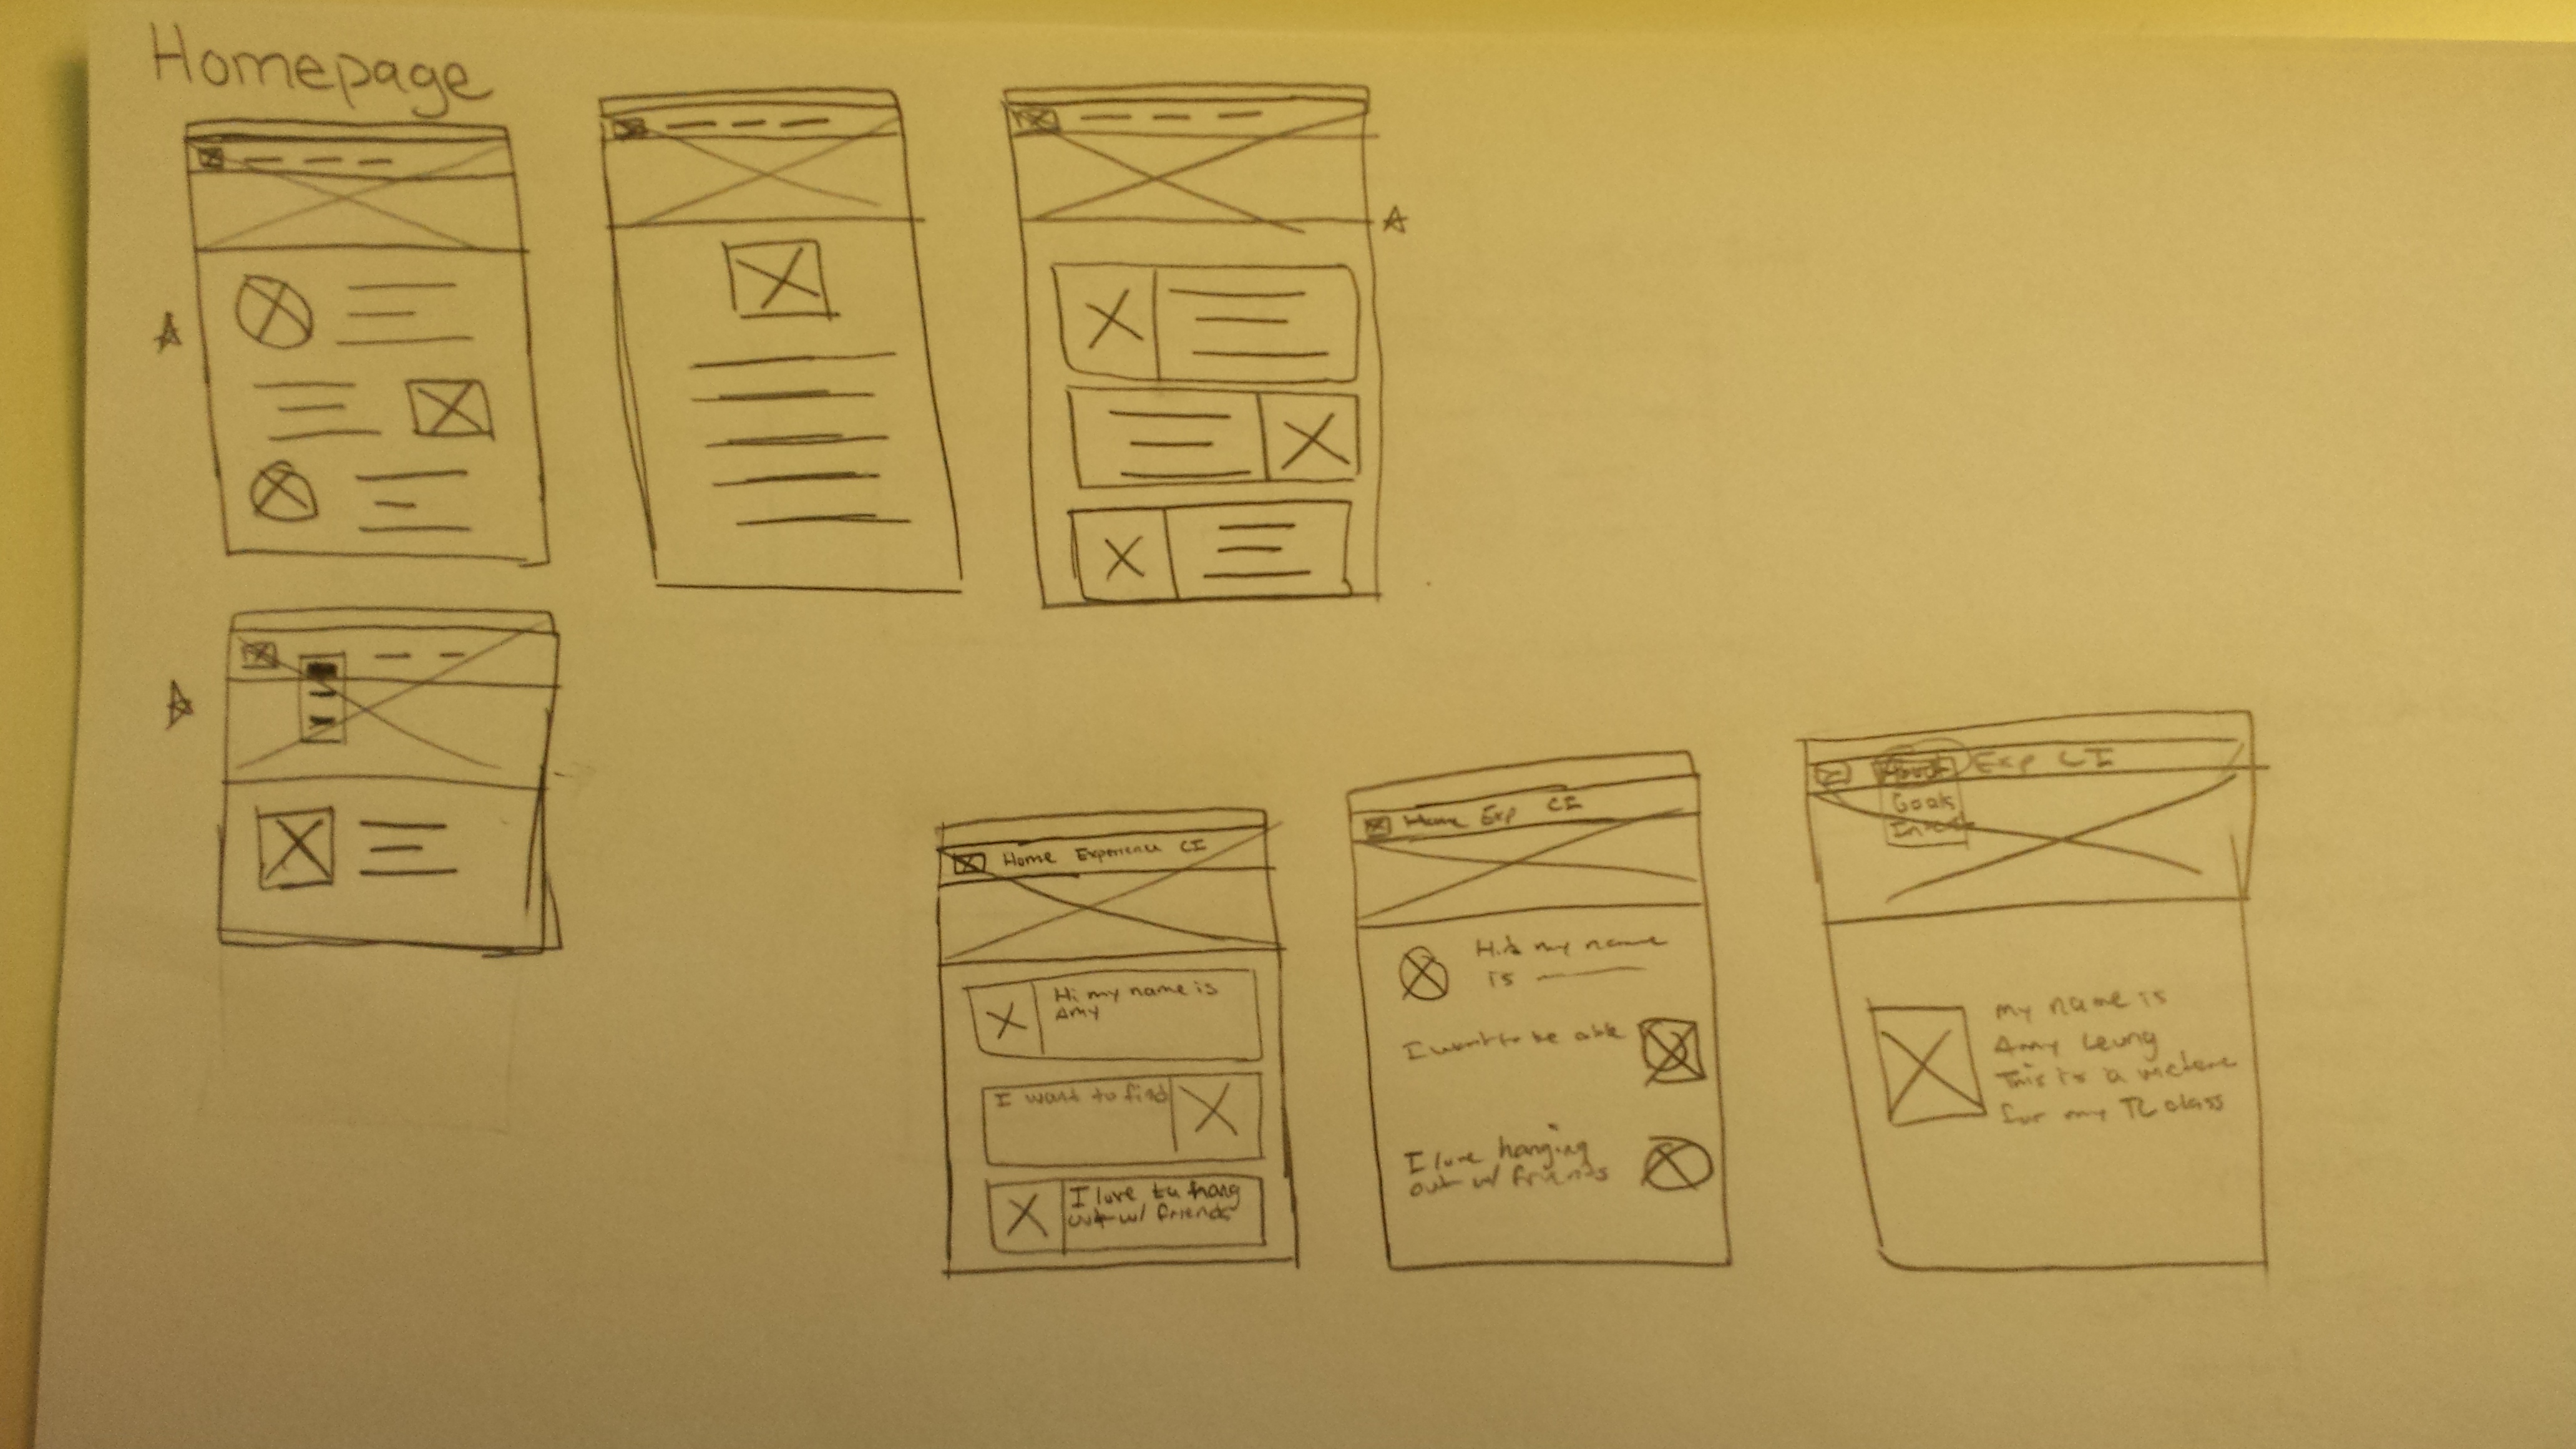 Homepage
Home Experience CI
Hi my name is
Amy
I want to find
I love to hang
out w/ friends
Home Exp CI
my name
is
I want to be able
I love hanging
out w/ friends
Exp CI
Goals
My name is
Amy Leung
This is a
for my class